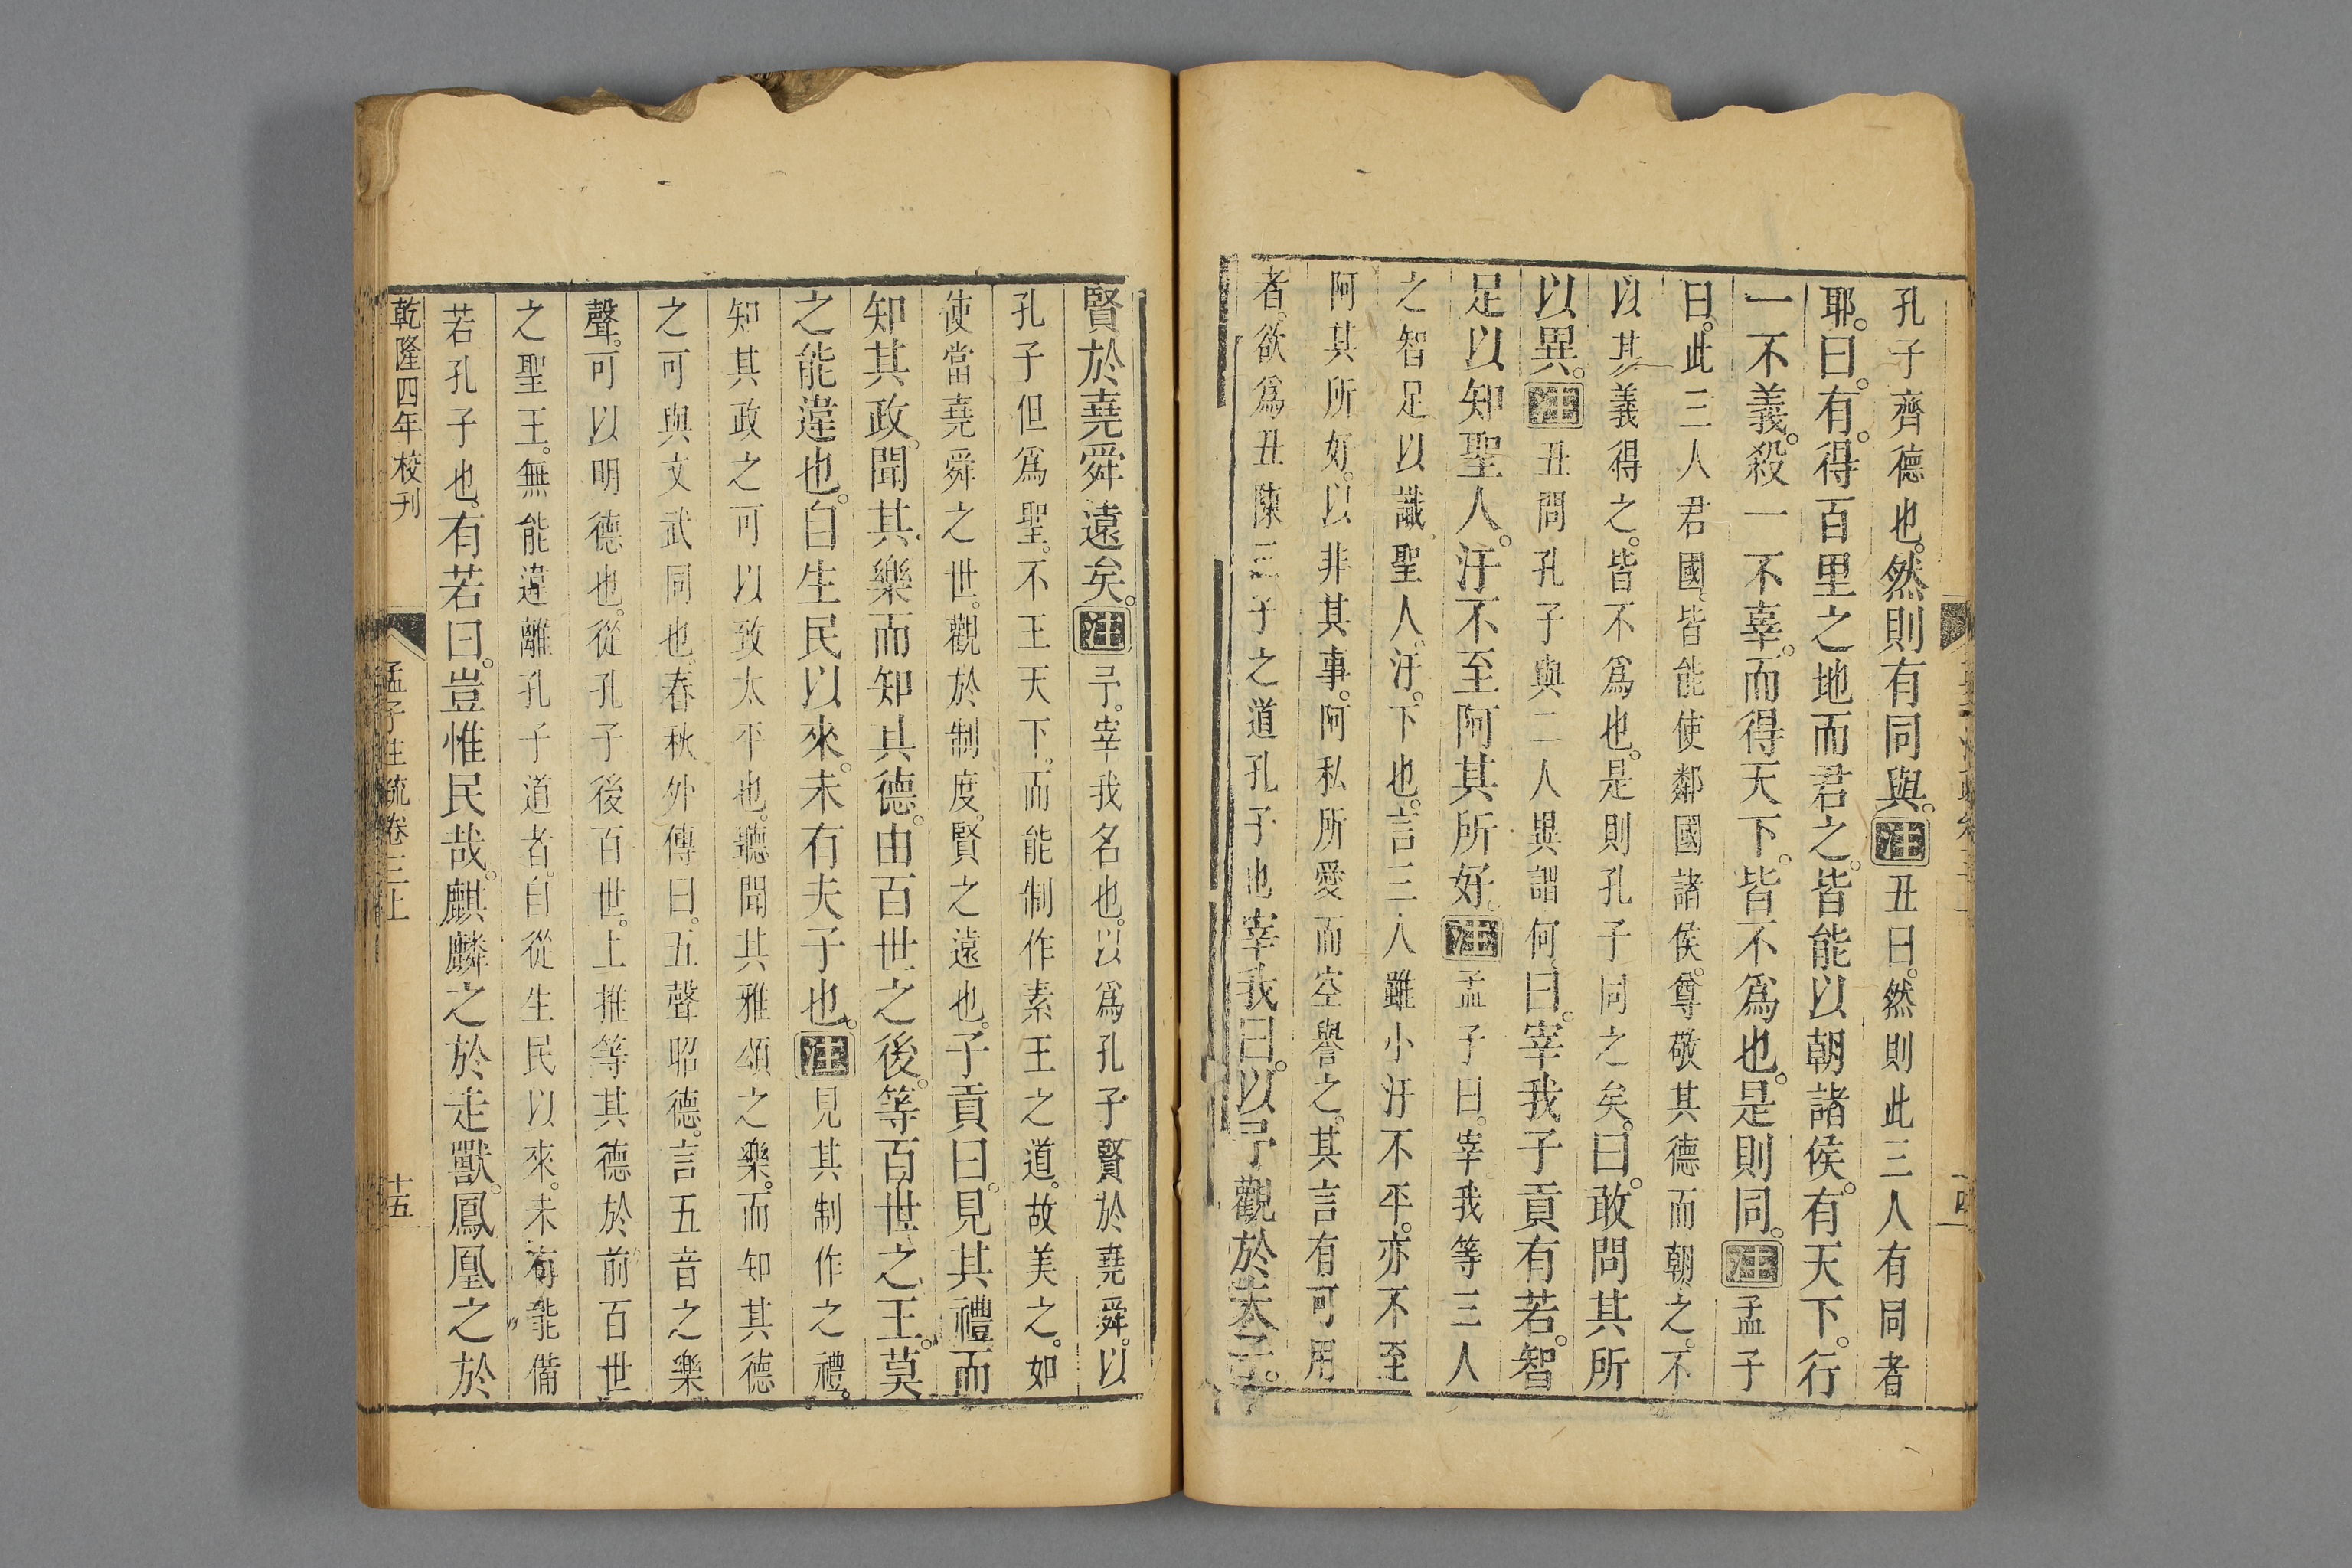 孔子齊德也。然則有同與。注丑曰。然則此三人有同者
耶。曰。有。得百里之地而君之。皆能以朝諸侯。有天下。行
一不義。殺一不辜。而得天下。皆不爲也。是則同。注孟子
曰。此三人君國。皆能使鄰國諸侯。尊敬其德而朝之。不
以其義得之。皆不爲也。是則孔子同之矣。曰。敢問其所
以異。注丑問孔子與二人異謂何。曰。宰我子貢有若。智
足以知聖人。汙不至阿其所好。注孟子曰。宰我等三人
之智足以識聖人。汙。下也。言三人雖小汙不平。亦不至
阿其所好。以非其事。阿私所愛而空譽之。其言有可用
者。欲爲丑陳三子之道孔子也宰我曰。以予觀於夫子。
賢於堯舜遠矣。注予。宰我名也。以爲孔子賢於堯舜。以
孔子但爲聖。不王天下。而能制作素王之道。故美之。如
使當堯舜之世。觀於制度。賢之遠也。子貢曰。見其禮而
知其政。聞其樂而知其德。由百世之後。等百世之王。莫
之能違也。自生民以來。未有夫子也。注見其制作之禮。
知其政之可以致太平也。聽聞其雅頌之樂。而知其德
之可與文武同也。春秋外傳曰。五聲昭德。言五音之樂
聲。可以明德也。從孔子後百世。上推等其德於前百世
之聖王。無能違離孔子道者。自從生民以來。未有能備
若孔子也。有若曰。豈惟民哉。麒麟之於走獸。鳳凰之於
乾隆四年校刊
孟子注疏卷三上
十五